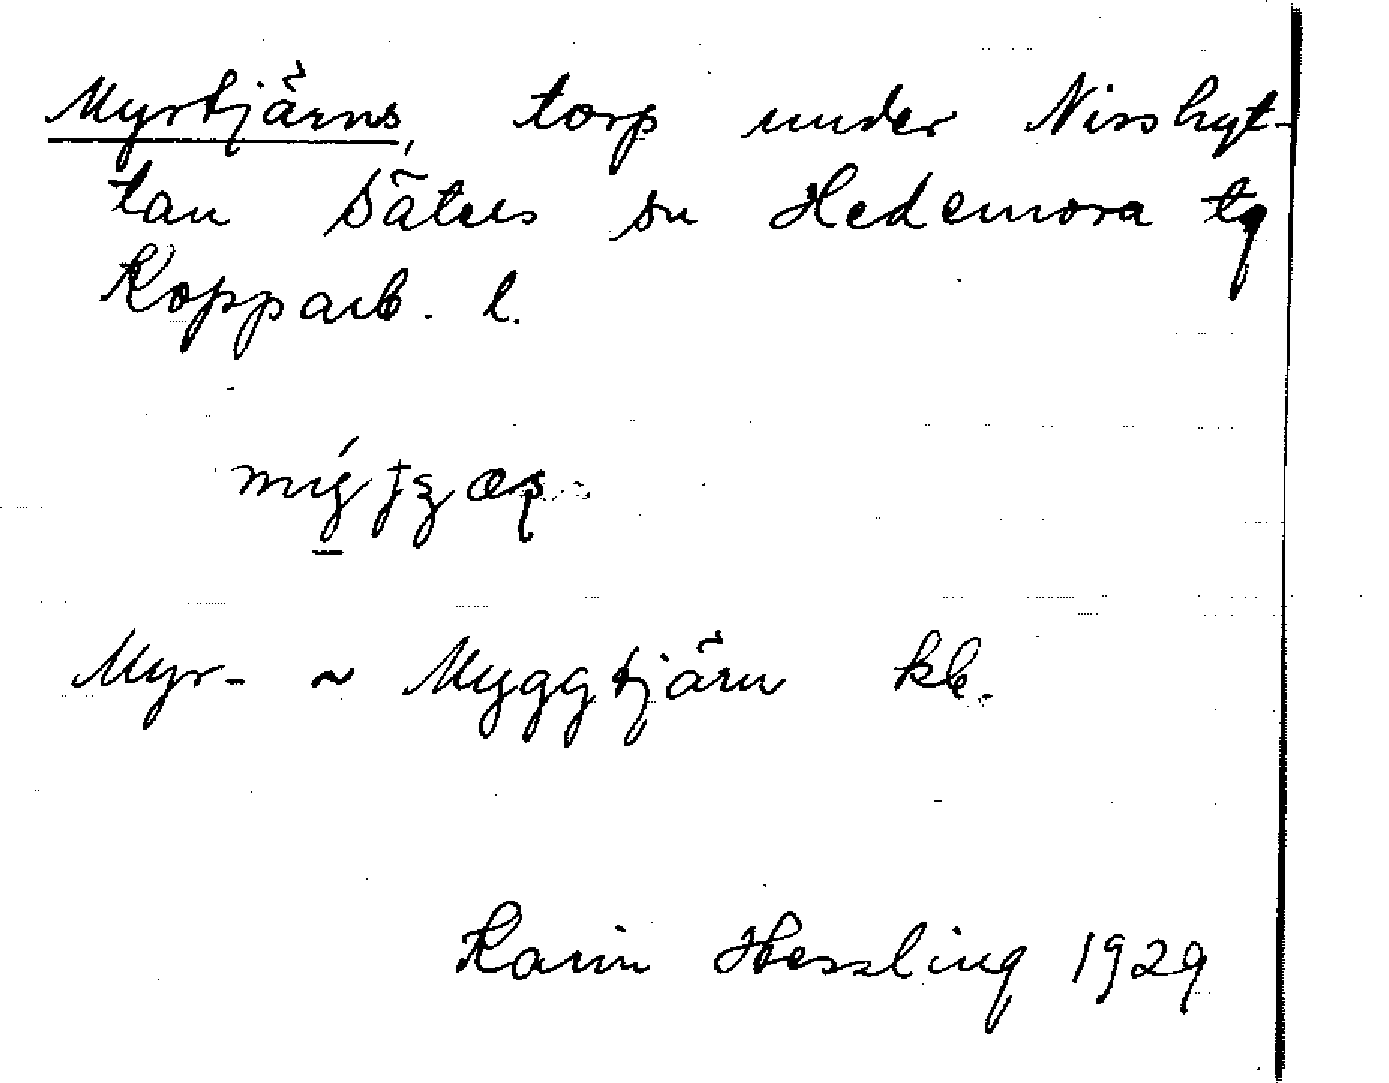 Myrtjärns, torp under Nisshyt-
tan Säters sn Hedemora tg
Kopparb. l.
Myr- ~ Myggtjärn kb.
Karin Hessling 1929